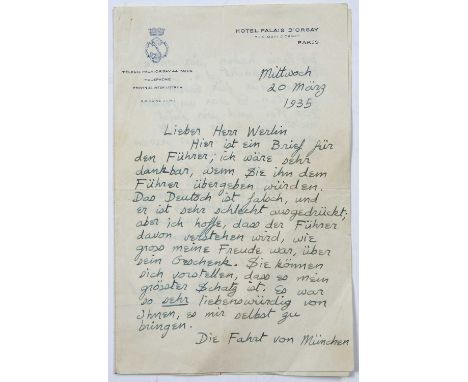 HOTEL PALAIS D'ORSAY
PARIS
TELEPHONE
Mittwoch
20 März
1935
Lieber Herr Werlin
Hier ist ein Brief für
den Führer; ich wäre sehr
dankbar, wenn Sie ihn dem
Führer übergeben würden.
Das Deutsch ist falsch, und
er ist sehr schlecht ausgedrückt;
aber ich hoffe, dass der Führer
davon verstehen wird, wie
gross meine Freude war, über
sein Geschenk. Sie können
sich vorstellen, dass es mein
grösster Schatz ist. Es war
so sehr liebenswürdig von
Ihnen, es mir selbst zu
bringen.
Die Fahrt von München